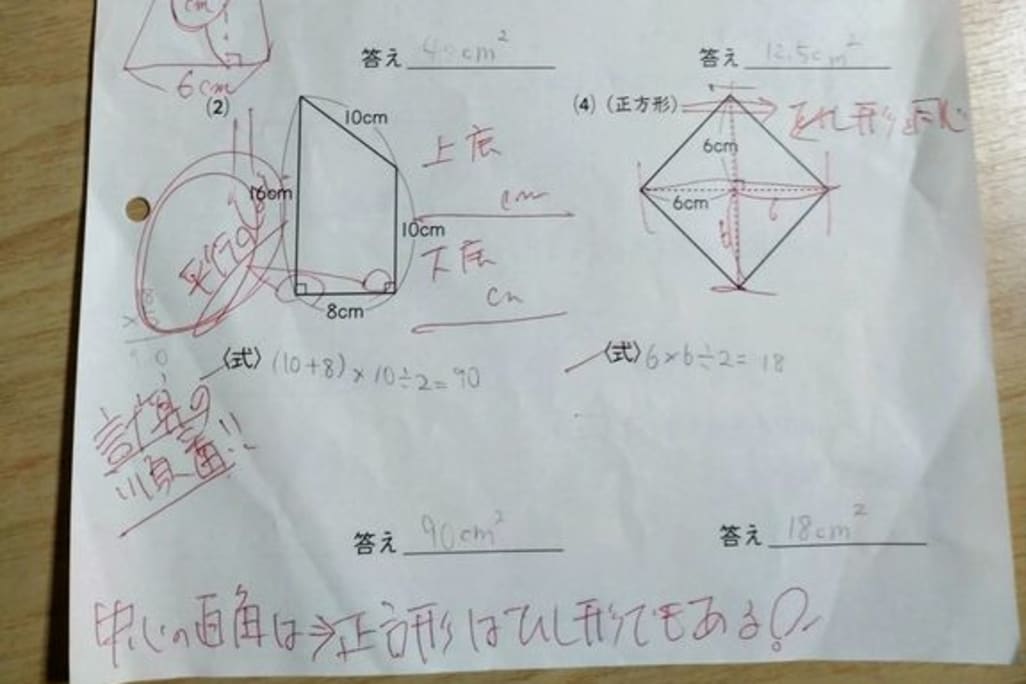 cm
6cm
答え 40cm²
答え 12.5cm²
(2)
10cm
16cm
10cm
8cm
上底
cm
下底
cm
平行
(4) (正方形)
ひし形と同じ
6cm
6cm
6
6
8
90
〈式〉(10+8)×10÷2=90
〈式〉6×6÷2=18
計算の
順番!!
答え 90cm²
答え 18cm²
中心の直角は⇒正方形はひし形でもある?